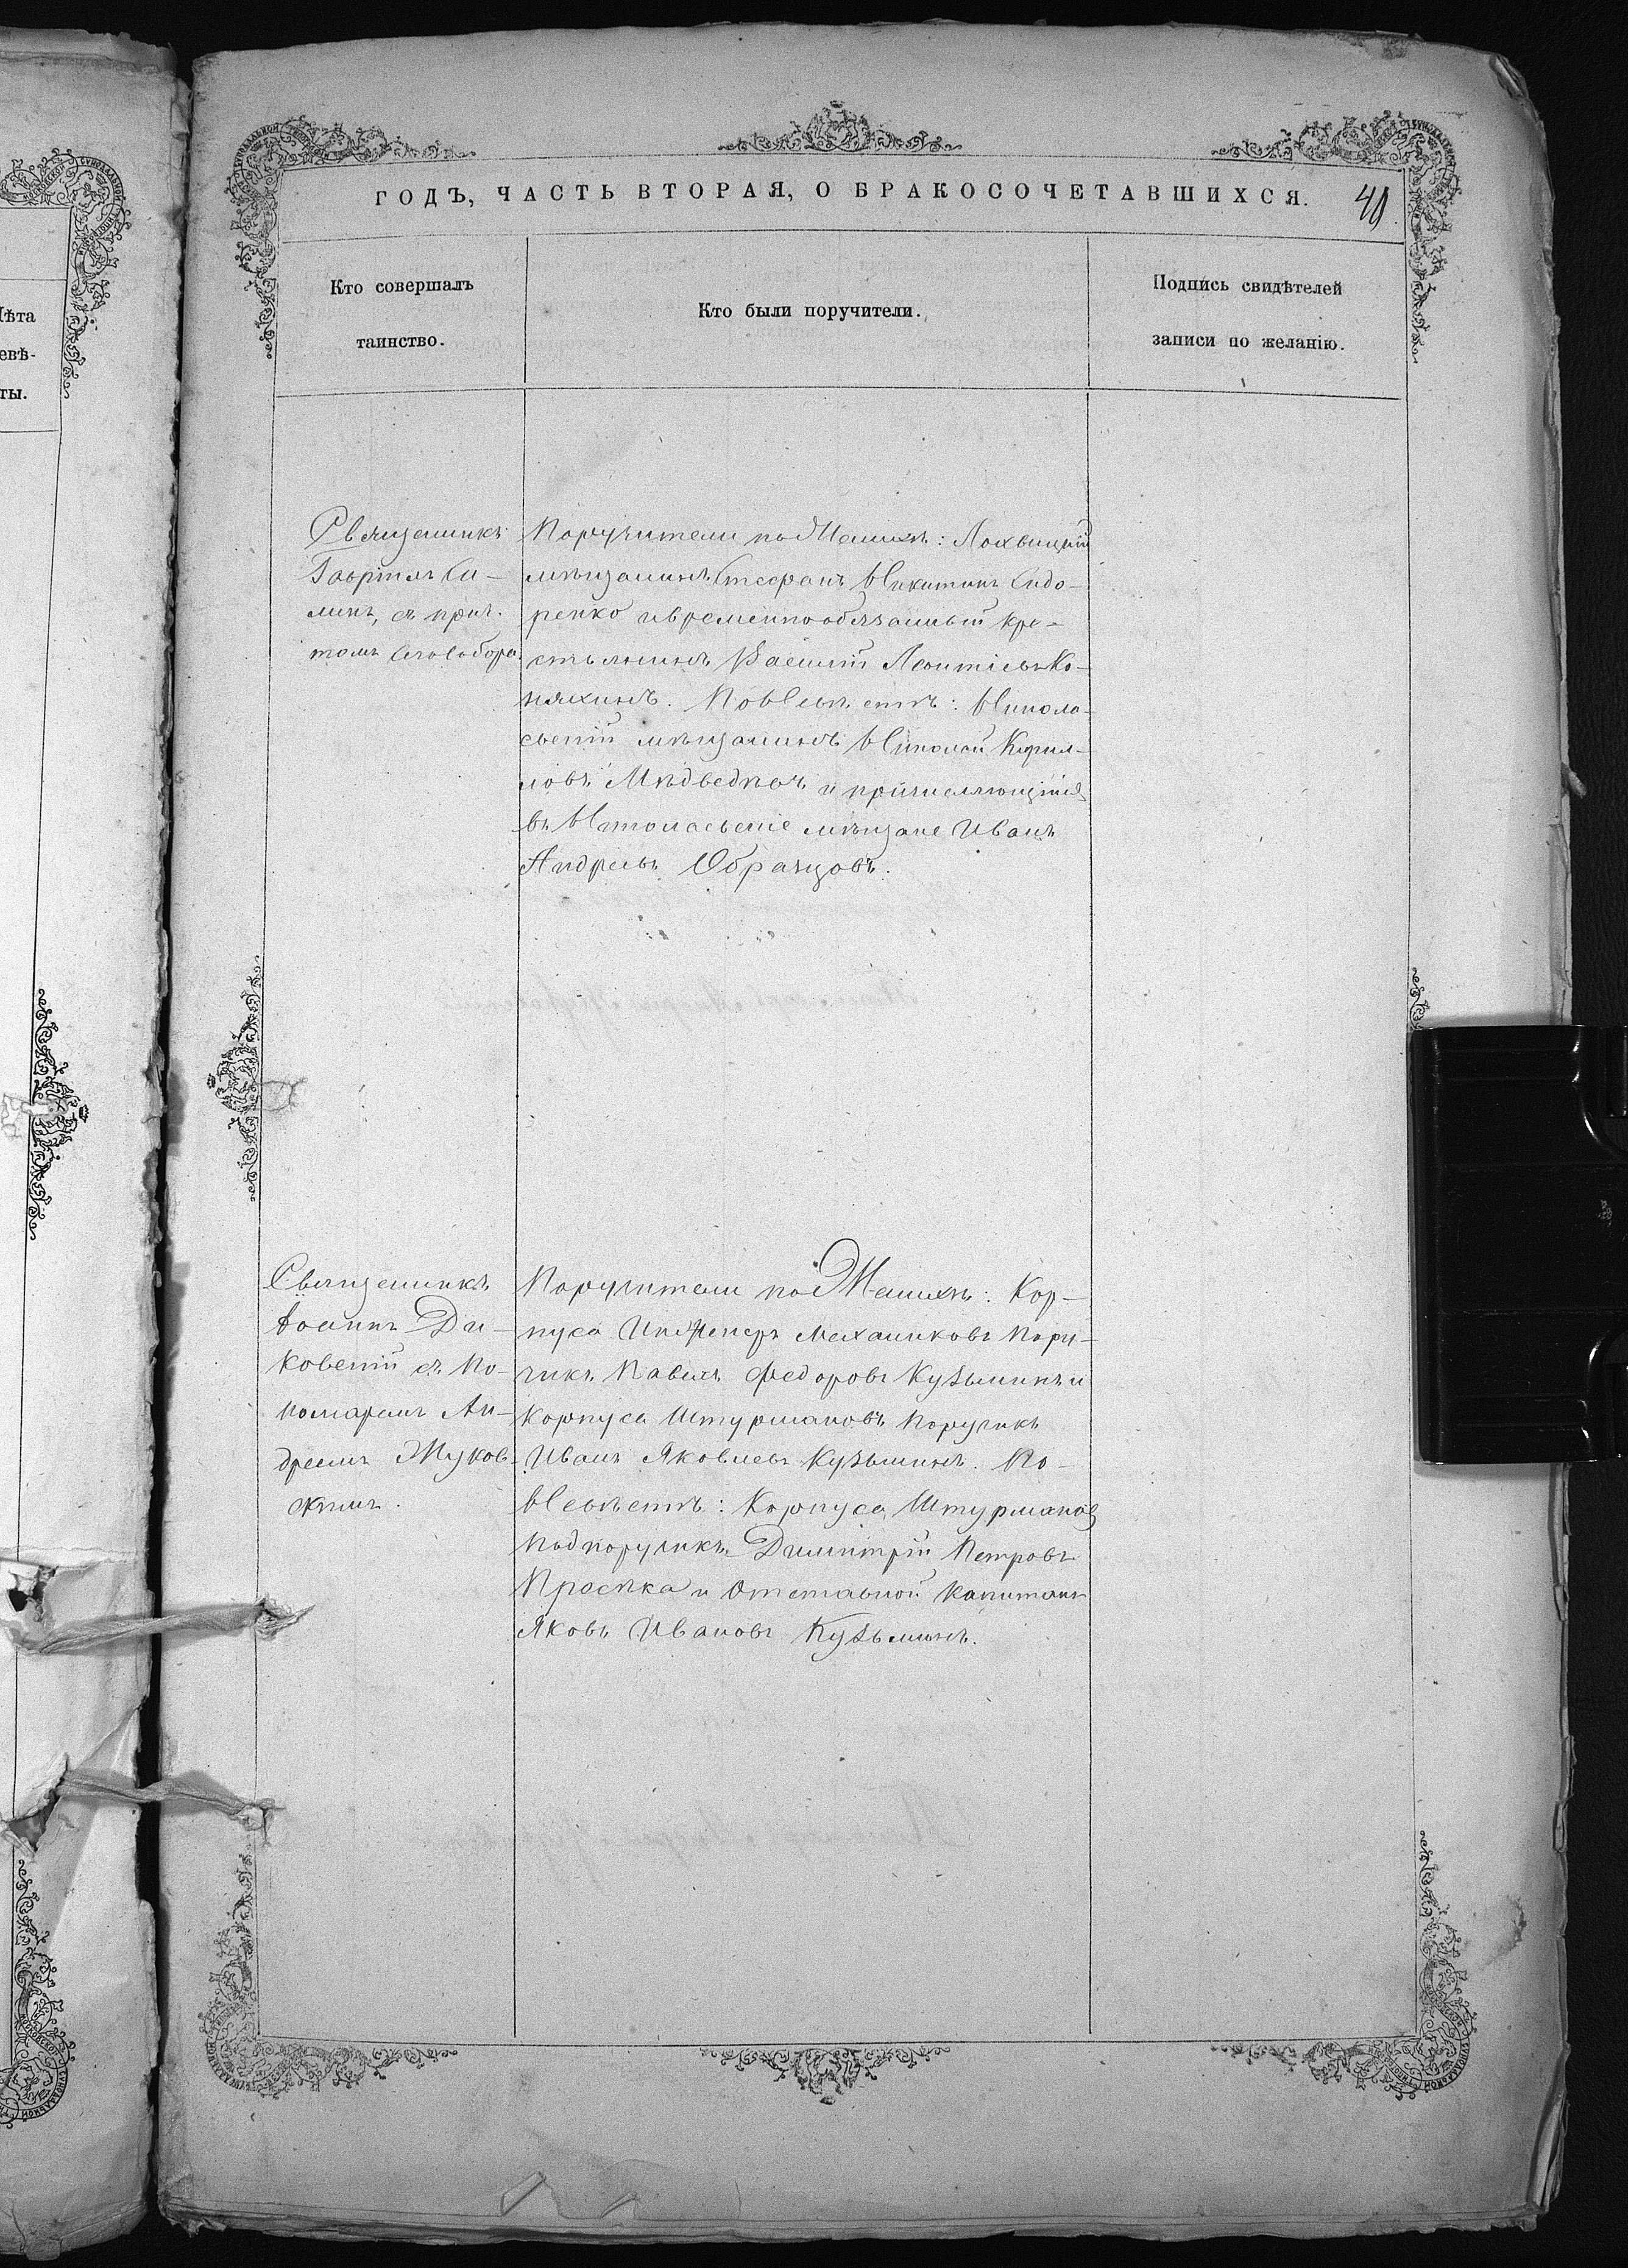 ГОДЪ, ЧАСТЬ ВТОРАЯ, О БРАКОСОЧЕТАВШИХСЯ.
40
Кто совершалъ
таинство.
Кто были поручители.
Подпись свидѣтелей
записи по желанію.
лѣта
евѣ-
ты.
Священникъ
Гавріилъ Си-
минъ, съ прич-
томъ сего собора
Поручители по Женихѣ: Лохвицкій
мѣщанинъ Стефанъ Никитинъ Сидо-
ренко и временнообязанный кре-
стьянинъ Василій Леонтіевъ Ко-
няхинъ. По Невѣстѣ: Никола-
евскій мѣщанинъ Николай Кирил-
ловъ Мѣдведевъ и причисляющійся
въ Николаевскіе мѣщане Иванъ
Андреевъ Образцовъ.
Священникъ
Іоаннъ Ди-
ковскій съ По-
номаремъ Ан-
дреемъ Жуков-
скимъ.
Поручители по Женихѣ: Кор-
пуса Инженеръ Механиковъ Пору-
чикъ Павелъ Федоровъ Кузьминъ и
Корпуса Штурмановъ Поручикъ
Иванъ Яковлевъ Кузьминъ. По
Невѣстѣ: Корпуса Штурмановъ
Подпоручикъ Димитрій Петровъ
Просѣка и Отставной Капитанъ
Яковъ Ивановъ Кузьминъ.